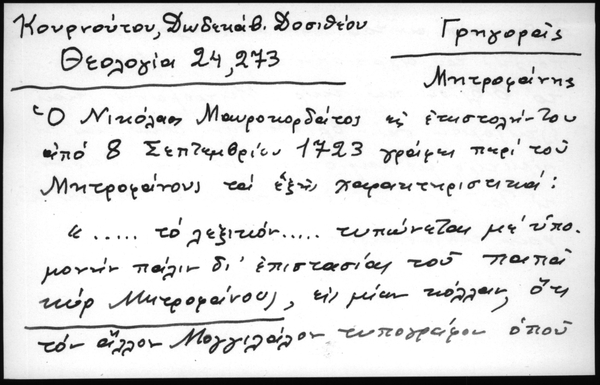 Κουρνούτου, Δωδεκάβ. Δοσιθέου
Θεολογία 24, 273
Γρηγοράς
Μητροφάνης
Ὁ Νικόλαος Μαυροκορδάτος εἰς ἐπιστολήν του
ἀπό 8 Σεπτεμβρίου 1723 γράφει περί τοῦ
Μητροφάνους τά ἑξῆς χαρακτηριστικά:
"..... τό λεξικόν..... τυπώνεται μέ ὑπο-
μονήν πάλιν δι' ἐπιστασίας τοῦ παπᾶ
κύρ Μητροφάνους, εἰς μίαν κόλλαν, ὅτι
τόν ἄλλον Μογγιλάλον τυπογράφον ὁποῦ